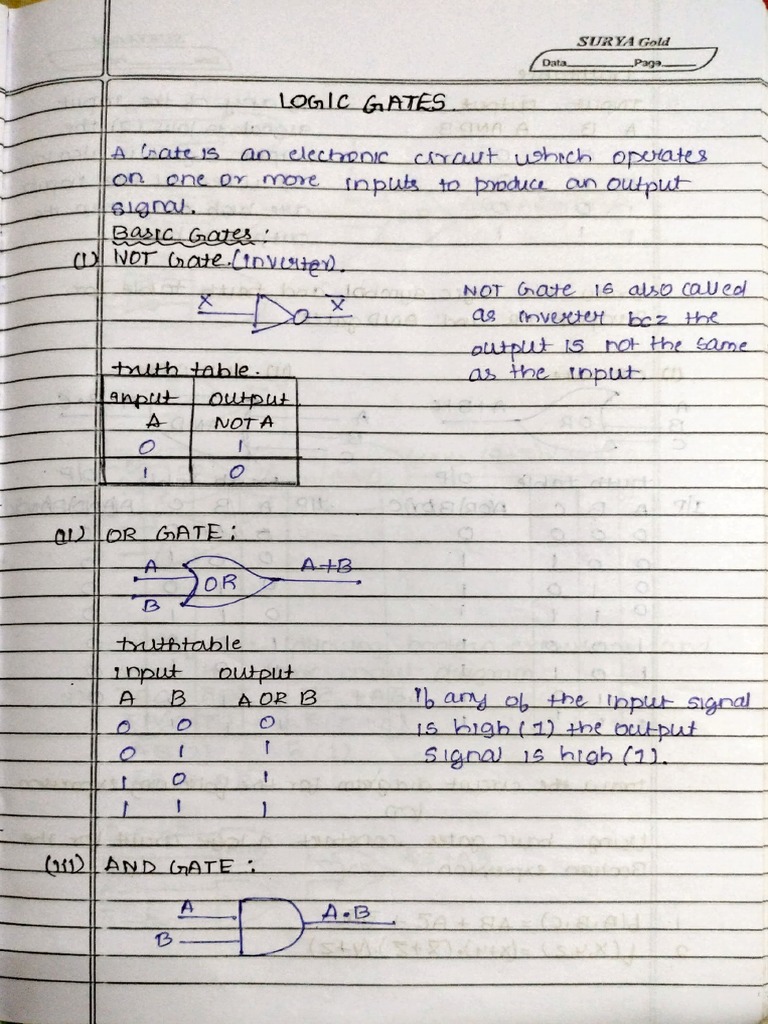 SURYA Gold
Data Page
LOGIC GATES.
A Gate is an electronic circuit which operates
on one or more inputs to produce an output
signal.
Basic Gates:
(i) NOT Gate.(Inverter).
X X̅
NOT Gate is also called
as inverter bcz the
output is not the same
as the input.
truth table.
input output
A NOT A
0 1
1 0
(ii) OR GATE:
A A+B
OR
B
truthtable
input output
A B A OR B
0 0 0
0 1 1
1 0 1
1 1 1
If any of the input signal
is high (1) the output
signal is high (1).
(iii) AND GATE:
A A.B
B